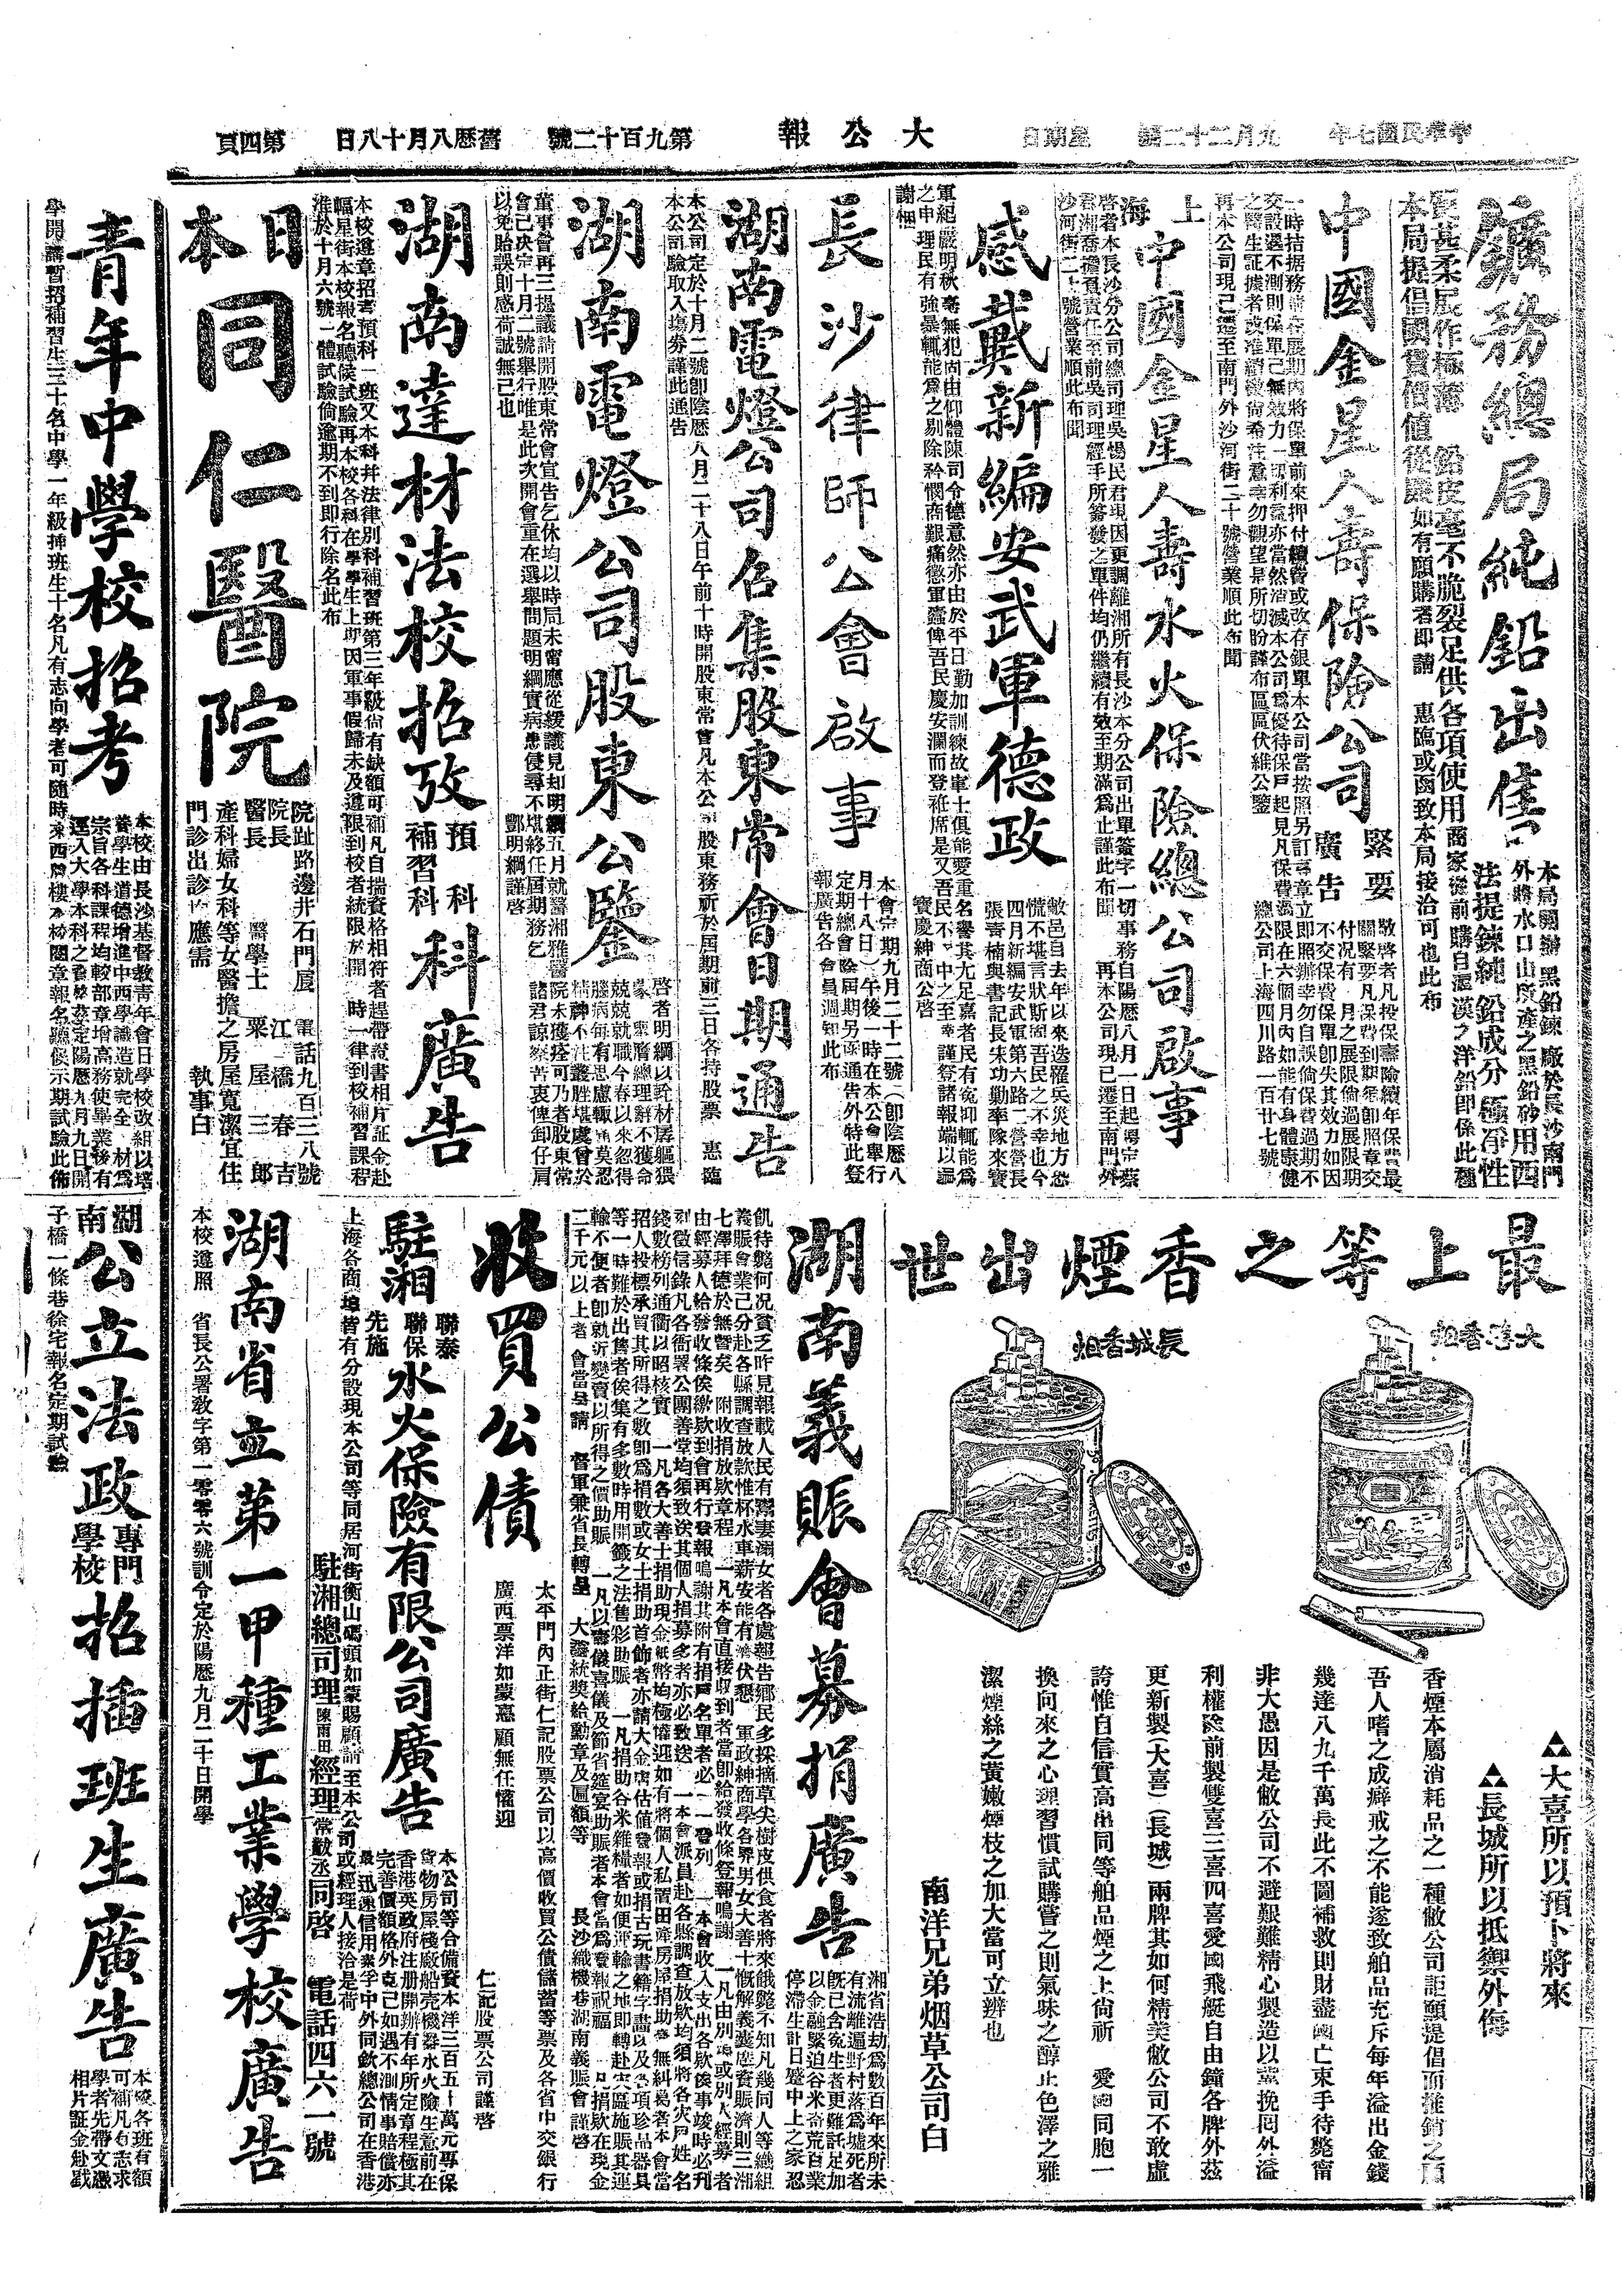 中華民國七年 九月二十二號 星期日 大公報 第九百十二號 舊歷八月十八日 第四頁
鑛務總局純鉛出售
本局開辦黑鉛鍊廠於長沙南門
外將水口山所產之黑鉛砂用西
法提鍊純鉛成分極淨性
質甚柔展作極薄鉛皮毫不脆裂足供各項使用商家從前購自漢之洋鉛即係此種
本局提倡國貨價值從廉如有顧購者即請 惠臨或函致本局接洽可也此布
中國金星人壽保險公司
緊要
廣告
敬啓者凡投保壽險續年保費最
關緊要凡保費到期例即照章交
付況有一月之展限倘過展限期
不交保費保單卽失其效力如因
總公司上海四川路一百廿七號
再本公司現已遷至南門外沙河街二十號營業順此布聞
上海
中國金星人壽水火保險總公司啟事
啓者本長沙分公司總司理吳惕民君現因更調離湘所有長沙本分公司出單簽字一切事務自陽歷八月一日起
至前吳司理經手所簽發之單件均仍繼續有效至期滿爲止謹此布聞 再本公司現已遷至南門外
沙河街二十號營業順此布聞
感戴新編安武軍德政
敝邑自去年以來迭罹兵災地方恐
慌不堪言狀斯固吾民之不幸也今
四月新編安武軍第六路二營營長
張寶楠與書記長朱功勤率隊來寶
軍紀嚴明秋毫無犯固由仰體陳司令德意然亦由於平日勤加訓練故軍士俱能愛重名譽其尤足嘉者民有寃抑輒能爲
之申理民有強暴輒能爲之剔除矜憫商艱痛懲軍蠹俾吾民慶安瀾而登袵席是又吾民不幸中之至幸謹登諸報端以誌
謝悃 寶慶紳商公啓
長沙律師公會啟事
本會定期九月二十二號(卽陰歷八
月十八日)午後一時在本公會舉行
定期總會除屆期另函通告外特此登
報廣告各會員週知此布
湖南電燈公司召集股東常會日期通告
本公司定於十月二號卽陰歷八月二十八日午前十時開股東常會凡本公司股東務祈於屆期前三日各持股票 惠臨
本公司驗取入場劵謹此通告
湖南電燈公司股東公鑒
啓者明綱以銓材孱軀猥
蒙 貴會總理辭不獲命
兢兢就職今春以來忽得
腦病每有思慮輒痛莫忍
精神不注叢脞堪虞曾於
五月就醫湘雅醫院未獲痊可乃者股東常
董事會再三提議請開股東常會宣告乞休均以時局未甯應從緩議見却明綱
會已决定十月二號舉行唯是此次開會重在選舉問題明綱實病患侵尋不堪終任屆期務乞 諸君諒察苦衷俾卸仔肩
以免貽誤則感荷誠無已也 鄧明綱謹啓
湖南達材法校招攷
預科
補習科
科廣告
本校遵章招考預科一班又本科幷法律別科補習班第三年級尙有缺額可補凡自揣資格相符者趕帶證書相片証金赴
福星街本校報名聽候試驗再本校各科在學學生上期因軍事假歸未及遵限到校者統限於開一時一律到校補習課程
准於十月六號一體試驗倘逾期不到即行除名此布
日本
同仁醫院
院趾路邊井石門屋 電話九百三八號
院長 江橋春吉
醫長 醫學士 粟屋三郎
產科婦女科等女醫擔之房屋寬潔宜住
門診出診均應需 執事白
青年中學校招考
本校由長沙基督教靑年會日學校改組以培
養學生道德增進中西學識造就完全人材爲
宗旨各科課程均較部章增高務使畢業後有
逕入大學本科之資格茲定陽歷九月九日開
學開講暫招補習生三十名中學一年級揷班生十名凡有志向學者可隨時來西牌樓本校閱章報名聽候示期試驗此佈
最上等之香煙出世
大喜香煙
長城香烟
△△大喜所以預卜將來
△△長城所以抵禦外侮
香煙本屬消耗品之一種敝公司詎願提倡而推銷之顧
吾人嗜之成癖戒之不能遂致舶品充斥每年溢出金錢
幾達八九千萬長此不圖補救則財盡國亡束手待斃甯
非大愚因是敝公司不避艱難精心製造以冀挽囘外溢
利權除前製雙喜三喜四喜愛國飛艇自由鐘各牌外茲
更新製(大喜)(長城)兩牌其如何精美敝公司不敢虛
誇惟自信實高出同等舶品煙之上尙祈 愛國同胞一
換向來之心理習慣試購嘗之則氣味之醇正色澤之雅
潔煙絲之黃嫩煙枝之加大當可立辨也
南洋兄弟烟草公司白
湖南義賑會募捐廣告
湘省浩劫爲數百年來所未
有流離遍野村落爲墟死者
旣已含寃生者更難託足加
以金融緊迫谷米奇荒百業
停滯生計日蹙中上之家忍
飢待斃何況貧乏昨見報載人民有鬻妻溺女者各處報告鄉民多採摘草尖樹皮供食者將來餓斃不知凡幾同人等組
義賑會業已分赴各縣調查放款惟杯水車薪安能有濟伏懇 軍政紳商學各界男女大善士慨解義囊廣賜賑濟則三湘
七澤拜德於無暨矣 附收捐放欵章程 一凡本會直接收到者當卽給發收條登報鳴謝 一凡由別處或別人經募者
由經募人給發收條俟繳欵到會再行登報鳴謝其附有捐戶名單者必一一登列 一本會收入支出各欵俟事竣時必刋
刻徵信錄凡各衙署公團善堂均須致送其個人捐募多者亦必致送 一本會派員赴各縣調查放欵均須將各災戶姓名
錢數榜列通衢以昭核實 一凡各大善士捐助現金紙幣均極懽迎如有將個人私置田產房屋捐助無糾葛者本會當
招人投標承買其所得之數卽爲捐數或女士捐助首飾者亦請大金店估値登報或捐古玩書籍字畫以及各項珍品器具
等一時難於出售者俟集有多數時用開籤之法售彩助賑 一凡捐助谷米雜糧者如便運輸之地卽轉赴災區施賑其運
輸不便者卽就近變賣以所得之價助賑 一凡以壽儀喜儀及節省筵宴助賑者本會當爲登報祝福 一凡捐欵在現金
二千元以上者 會當呈請 督軍兼省長轉呈 大總統奬給勳章及匾額等 長沙織機巷湖南義賑會謹啓
收買公債
太平門內正街仁記股票公司以高價收買公債儲蓄等票及各省中交銀行
廣西票洋如蒙惠顧無任懽迎 仁記股票公司謹啓
駐湘
聯泰
聯保
先施
水火保險有限公司廣告
本公司等合備資本洋三百五十萬元專保
貨物房屋棧廠船壳機器水火險生意前在
香港英政府注册開辦有年所定章程極其
完善價額格外克己如遇不測情事賠償亦
最迅速信用素孚中外同欽總公司在香港
上海各商埠皆有分設現本公司等同居河街衡山碼頭如蒙賜顧請至本公司或經理人接洽是荷
駐湘總司理陳雨田 經理常歡丞同啓 電話四六一號
湖南省立第一甲種工業學校廣告
本校遵照 省長公署敎字第一零零六號訓令定於陽歷九月二十日開學
湖南
公立法政
專門
學校
招插班生廣告
本校各班有額
可補凡有志求
學者先帶文憑
相片証金赴戥
子橋一條巷徐宅報名定期試驗